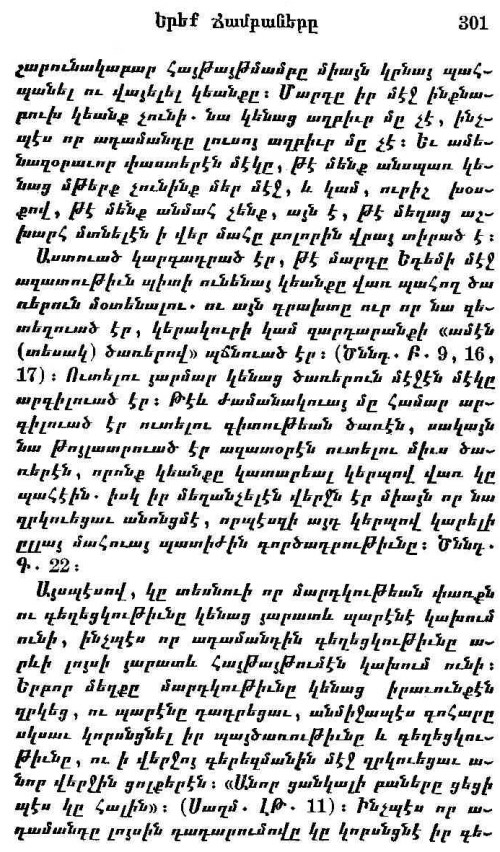 Երեք Ճամբաները 301
շարունակաբար Հայթայթմամբը միայն կրնայ պահ-
պանել ու վայելել կեանքը։ Մարդը իր մէջ ինքնա-
բուխ կեանք չունի. նա կենաց աղբիւր մը չէ, ինչ-
պէս որ ադամանդը լուսոյ աղբիւր մը չէ։ Եւ ամե-
նազօրաւոր փաստերէն մէկը, թէ մենք անսպառ կե-
նաց մթերք չունինք մեր մէջ, և կամ, ուրիչ խօս-
քով, թէ մենք անմահ չենք, այն է, թէ մեղաց աշ-
խարհ մտնելէն ի վեր մահը բոլորին վրայ տիրած է։
Աստուած կարգադրած էր, թէ մարդը Եդեմի մէջ
ազատութիւն պիտի ունենայ կեանքը վառ պահող ծա
ռերուն մօտենալու. ու այն դրախտը ուր որ նա զե-
տեղուած էր, կերակուրի կամ զարդարանքի «ամէն
(տեսակ) ծառերով» պճնուած էր։ (Ծննդ. Բ. 9, 16,
17)։ Ուտելու յարմար կենաց ծառերուն մէջէն մէկը
արգիլուած էր։ Թէև ժամանակուայ մը համար ար-
գիլուած էր ուտելու գիտութեան ծառէն, սակայն
նա թոյլատրուած էր ազատօրէն ուտելու միւս ծա-
ռերէն, որոնք կեանքը կատարեալ կերպով վառ կը
պահէին. իսկ իր մեղանչելէն վերջն էր միայն որ նա
զրկուեցաւ անոնցմէ, որպէսզի այդ կերպով կարելի
ըլլայ մահուայ պատիժին գործադրութիւնը։ Ծննդ.
Գ. 22։
Այսպէսով, կը տեսնուի որ մարդկութեան փառքն
ու գեղեցկութիւնը կենաց յարատև պարէնէ կախում
ունի, ինչպէս որ ադամանդին գեղեցկութիւնը ա-
րևի լոյսի յարատև Հայթայթումէն կախում ունի։
Երբոր մեղքը մարդկութիւնը կենաց իրաւունքէն
զրկեց, ու պարէնը դադրեցաւ, անմիջապէս գոհարը
սկսաւ կորսնցնել իր պայծառութիւնը և գեղեցկու-
թիւնը, ու ի վերջոյ գերեզմանին մէջ զրկուեցաւ ա-
նոր վերջին ցոլքերէն։ «Անոր ցանկալի բաները ցեցի
պէս կը հալին»։ (Սաղմ. ԼԹ. 11)։ Ինչպէս որ ա-
դամանդը լոյսին դադարումովը կը կորսնցնէ իր գե-